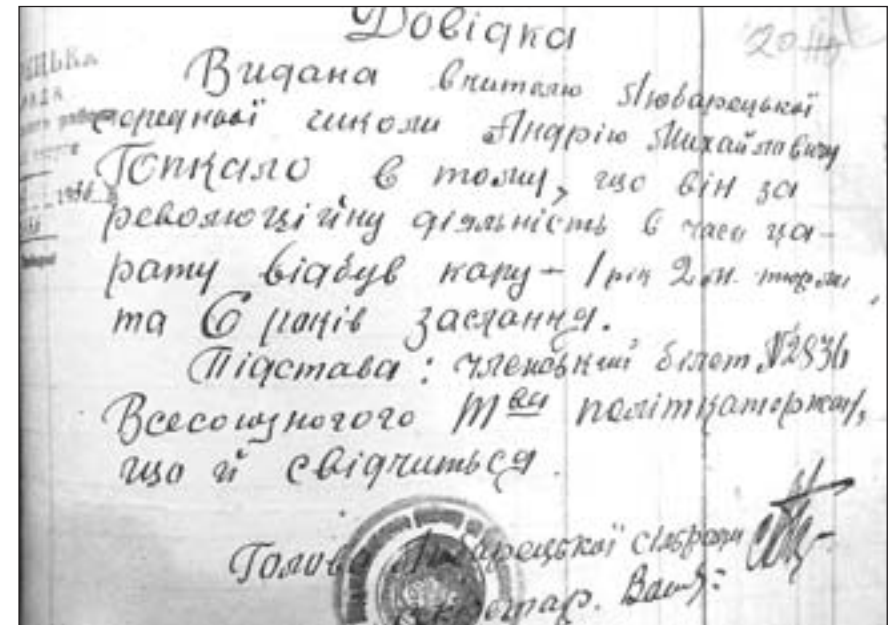 Довідка
20
Видана вчителю Люварецької
середньої школи Андрію Михайловичу
Гопкало в тому, що він за
революційну діяльність в часи ца-
рату відбув кару – 1 рік 2 м. тюрми
та 6 років заслання.
Підстава: членський білет №2836
Всесоюзного т-ва політкаторжан,
що й свідчиться.
Голова сільради
секретар.